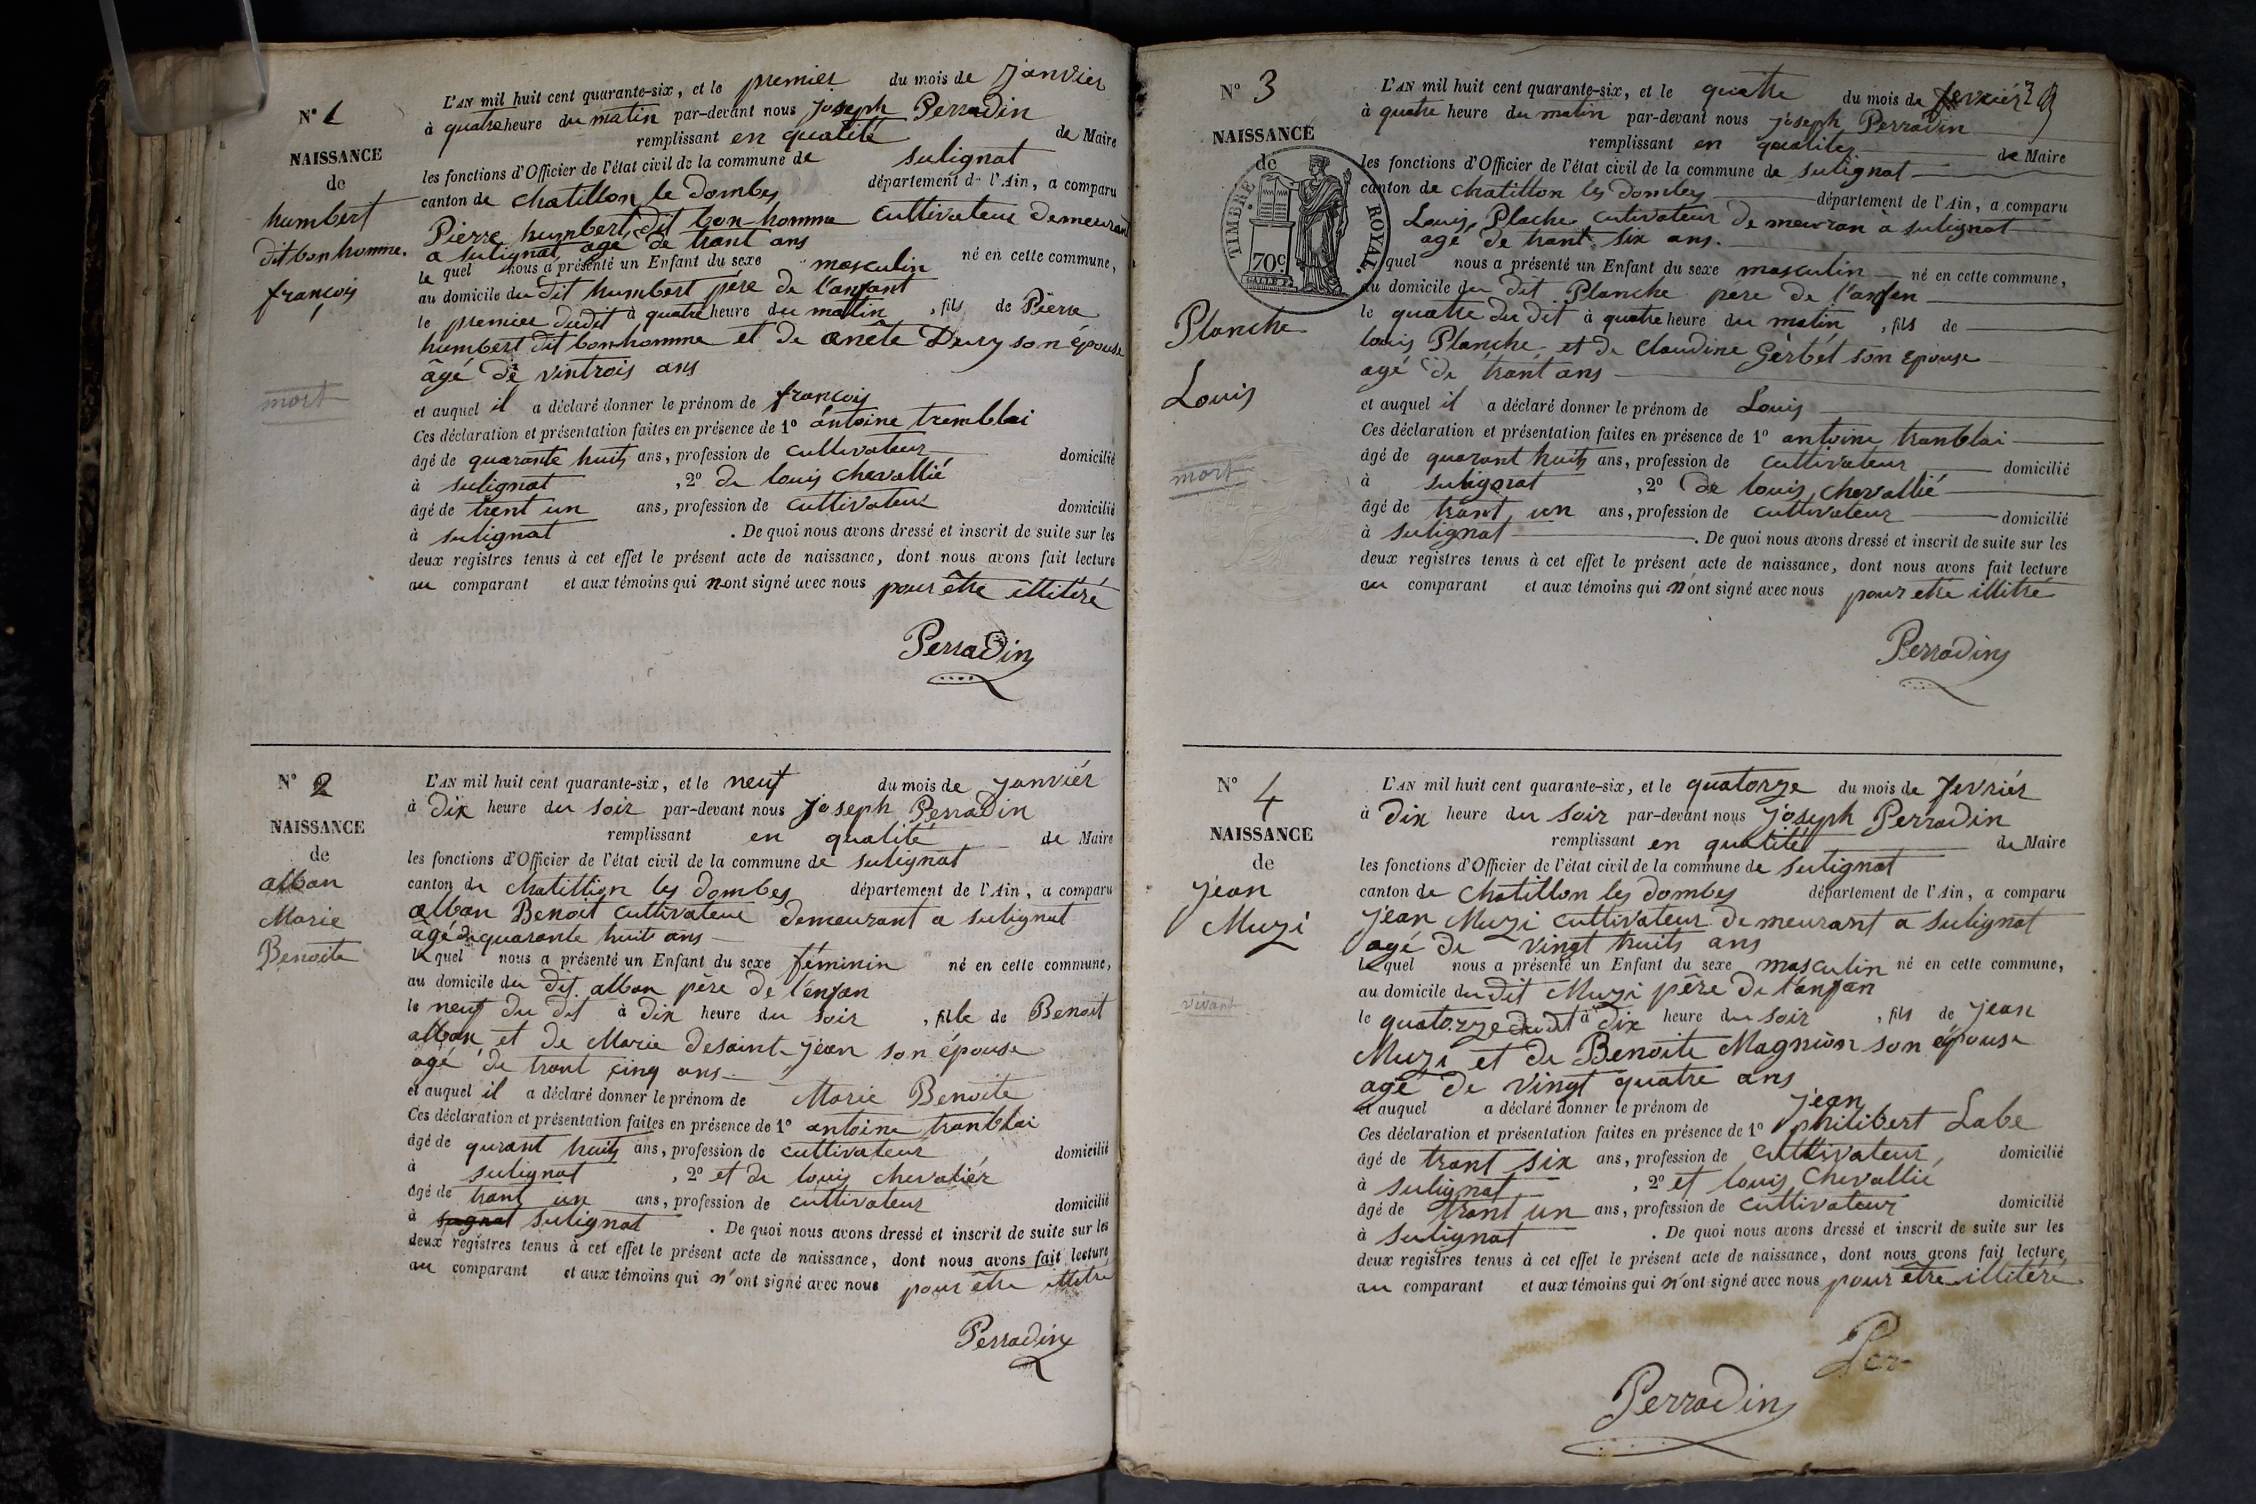 N° 1
NAISSANCE
de
humbert
dit bon homme.
françois
mort
L'AN mil huit cent quarante-six, et le premier du mois de janvier
à quatre heure du matin par-devant nous joseph Perradin
remplissant en qualité de Maire
les fonctions d'Officier de l'état civil de la commune de sulignat
canton de chatillon le dombes département de l'Ain, a comparu
Pierre humbert dit bon-homme cultivateur demeurant
a sulignat agé de trant ans
le quel nous a présenté un Enfant du sexe masculin né en cette commune,
au domicile du dit humbert père de l'anfant
le premier dudit à quatre heure du mattin, fils de Pierre
humbert dit bonhomme et de anéte Dury son épouse
agé de vintrois ans
et auquel il a déclaré donner le prénom de françois
Ces déclaration et présentation faites en présence de 1° antoine tremblai
âgé de quarante huits ans, profession de cultivateur domicilié
à sulignat, 2° de louis chevallié
âgé de trent un ans, profession de cultivateur domicilié
à sulignat. De quoi nous avons dressé et inscrit de suite sur les
deux registres tenus à cet effet le présent acte de naissance, dont nous avons fait lecture
au comparant et aux témoins qui n ont signé avec nous pour être illitéré
Perradin
N° 2
NAISSANCE
de
alban
Marie
Benoite
L'AN mil huit cent quarante-six, et le neuf du mois de janviér
à dix heure du soir par-devant nous joseph Perradin
remplissant en qualité de Maire
les fonctions d'Officier de l'état civil de la commune de sulignat
canton de chatillion les dombes département de l'Ain, a comparu
alban Benoit cultivateur demeurant a sulignat
agé de quarante huits ans
le quel nous a présenté un Enfant du sexe féminin né en cette commune,
au domicile du dit alban père de l'énfan
le neuf du dit à dix heure du soir, fille de Benoit
alban et de Marie desaint-jean son épouse
agé de trant cinq ans
et auquel il a déclaré donner le prénom de Marie Benoite
Ces déclaration et présentation faites en présence de 1° antoine tranblai
âgé de qurant huits ans, profession de cultivateur domicilié
à sulignat, 2° et de louis chevaliér
âgé de trant un ans, profession de cultivateur domicilié
à sulignat. De quoi nous avons dressé et inscrit de suite sur les
deux registres tenus à cet effet le présent acte de naissance, dont nous avons fait lecture
au comparant et aux témoins qui n'ont signé avec nous pour être
Perradin
N° 3
NAISSANCE
de
TIMBRE ROYAL.
70c
Planche
Louis
mort
L'AN mil huit cent quarante-six, et le quatre du mois de fevriér
à quatre heure du matin par-devant nous joseph Perradin
remplissant en qualités de Maire
les fonctions d'Officier de l'état civil de la commune de sulignat
canton de chatillon les dombes département de l'Ain, a comparu
Louis Plache cutivateur de meuran à sulignat
agé de trant six ans.
quel nous a présenté un Enfant du sexe masculin né en cette commune,
au domicile du dit Planche père de l'anfen
le quatre du dit à quatre heure du matin, fils de
louis Planche et de claudine Gérbét son epouse
agé de trant ans
et auquel il a déclaré donner le prénom de Louis
Ces déclaration et présentation faites en présence de 1° antoine tranblai
âgé de quarant huits ans, profession de cultivateur domicilié
à sulignat, 2° de louis chevallié
âgé de trant un ans, profession de cultivateur domicilié
à sulignat. De quoi nous avons dressé et inscrit de suite sur les
deux registres tenus à cet effet le présent acte de naissance, dont nous avons fait lecture
au comparant et aux témoins qui n'ont signé avec nous pour etre illitré
Perradin
N° 4
NAISSANCE
de
jean
Muzi
vivant
L'AN mil huit cent quarante-six, et le quatorze du mois de fevriér
à dix heure du soir par-devant nous joseph Perradin
remplissant en qualité de Maire
les fonctions d'Officier de l'état civil de la commune de sulignat
canton de chatillon les dombes département de l'Ain, a comparu
jean Muzi cultivateur de meurant a sulignat
agé de vingt huits ans
le quel nous a présenté un Enfant du sexe masculin né en cette commune,
au domicile du dit Muzi père de l'anfan
le quatorze dudit à dix heure du soir, fils de jean
Muzi et de Benoite Magnion son épouse
agé de vingt quatre ans
et auquel a déclaré donner le prénom de jean
Ces déclaration et présentation faites en présence de 1° philibert Labe
âgé de trant six ans, profession de cultivateur, domicilié
à sulignat, 2° et louis chevallié
âgé de trant un ans, profession de cultivateur domicilié
à sulignat. De quoi nous avons dressé et inscrit de suite sur les
deux registres tenus à cet effet le présent acte de naissance, dont nous avons fait lecture
au comparant et aux témoins qui n'ont signé avec nous pour être illitéré
Per
Perradin